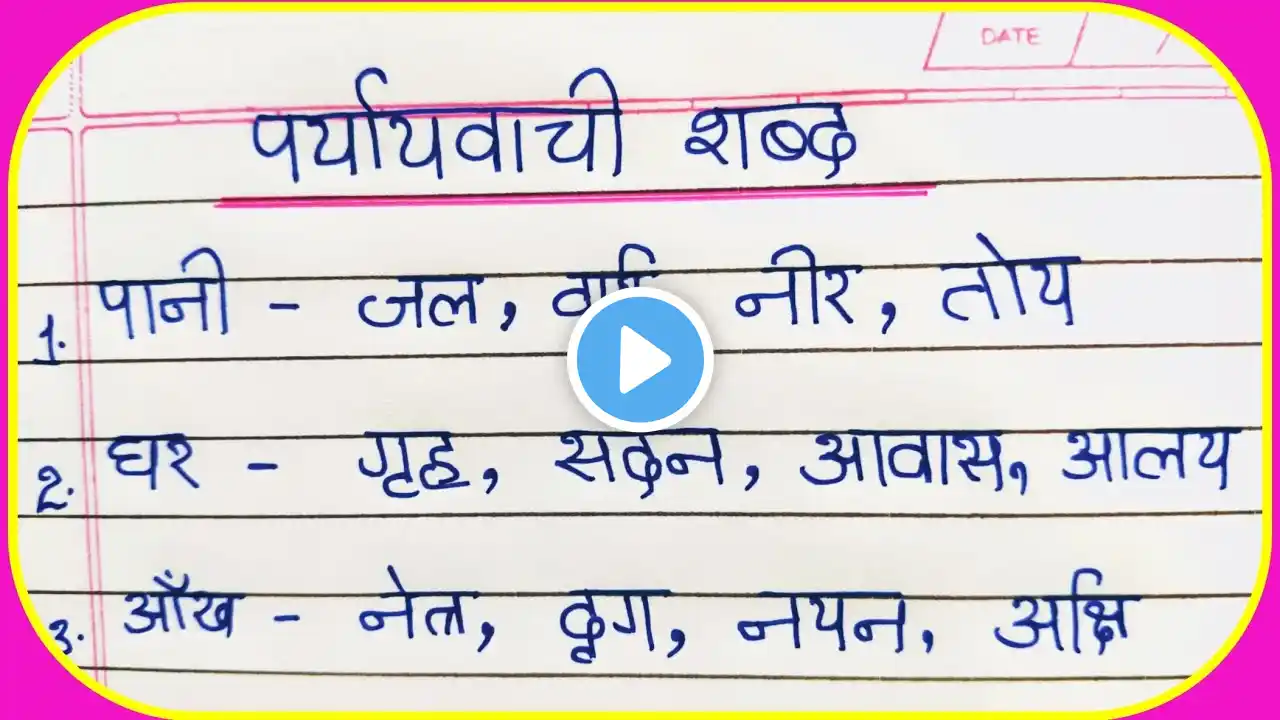 DATE
पर्यायवाची शब्द
1. पानी - जल, नीर, तोय
2. घर - गृह, सदन, आवास, आलय
3. आँख - नेत्र, दृग, नयन, अक्षि